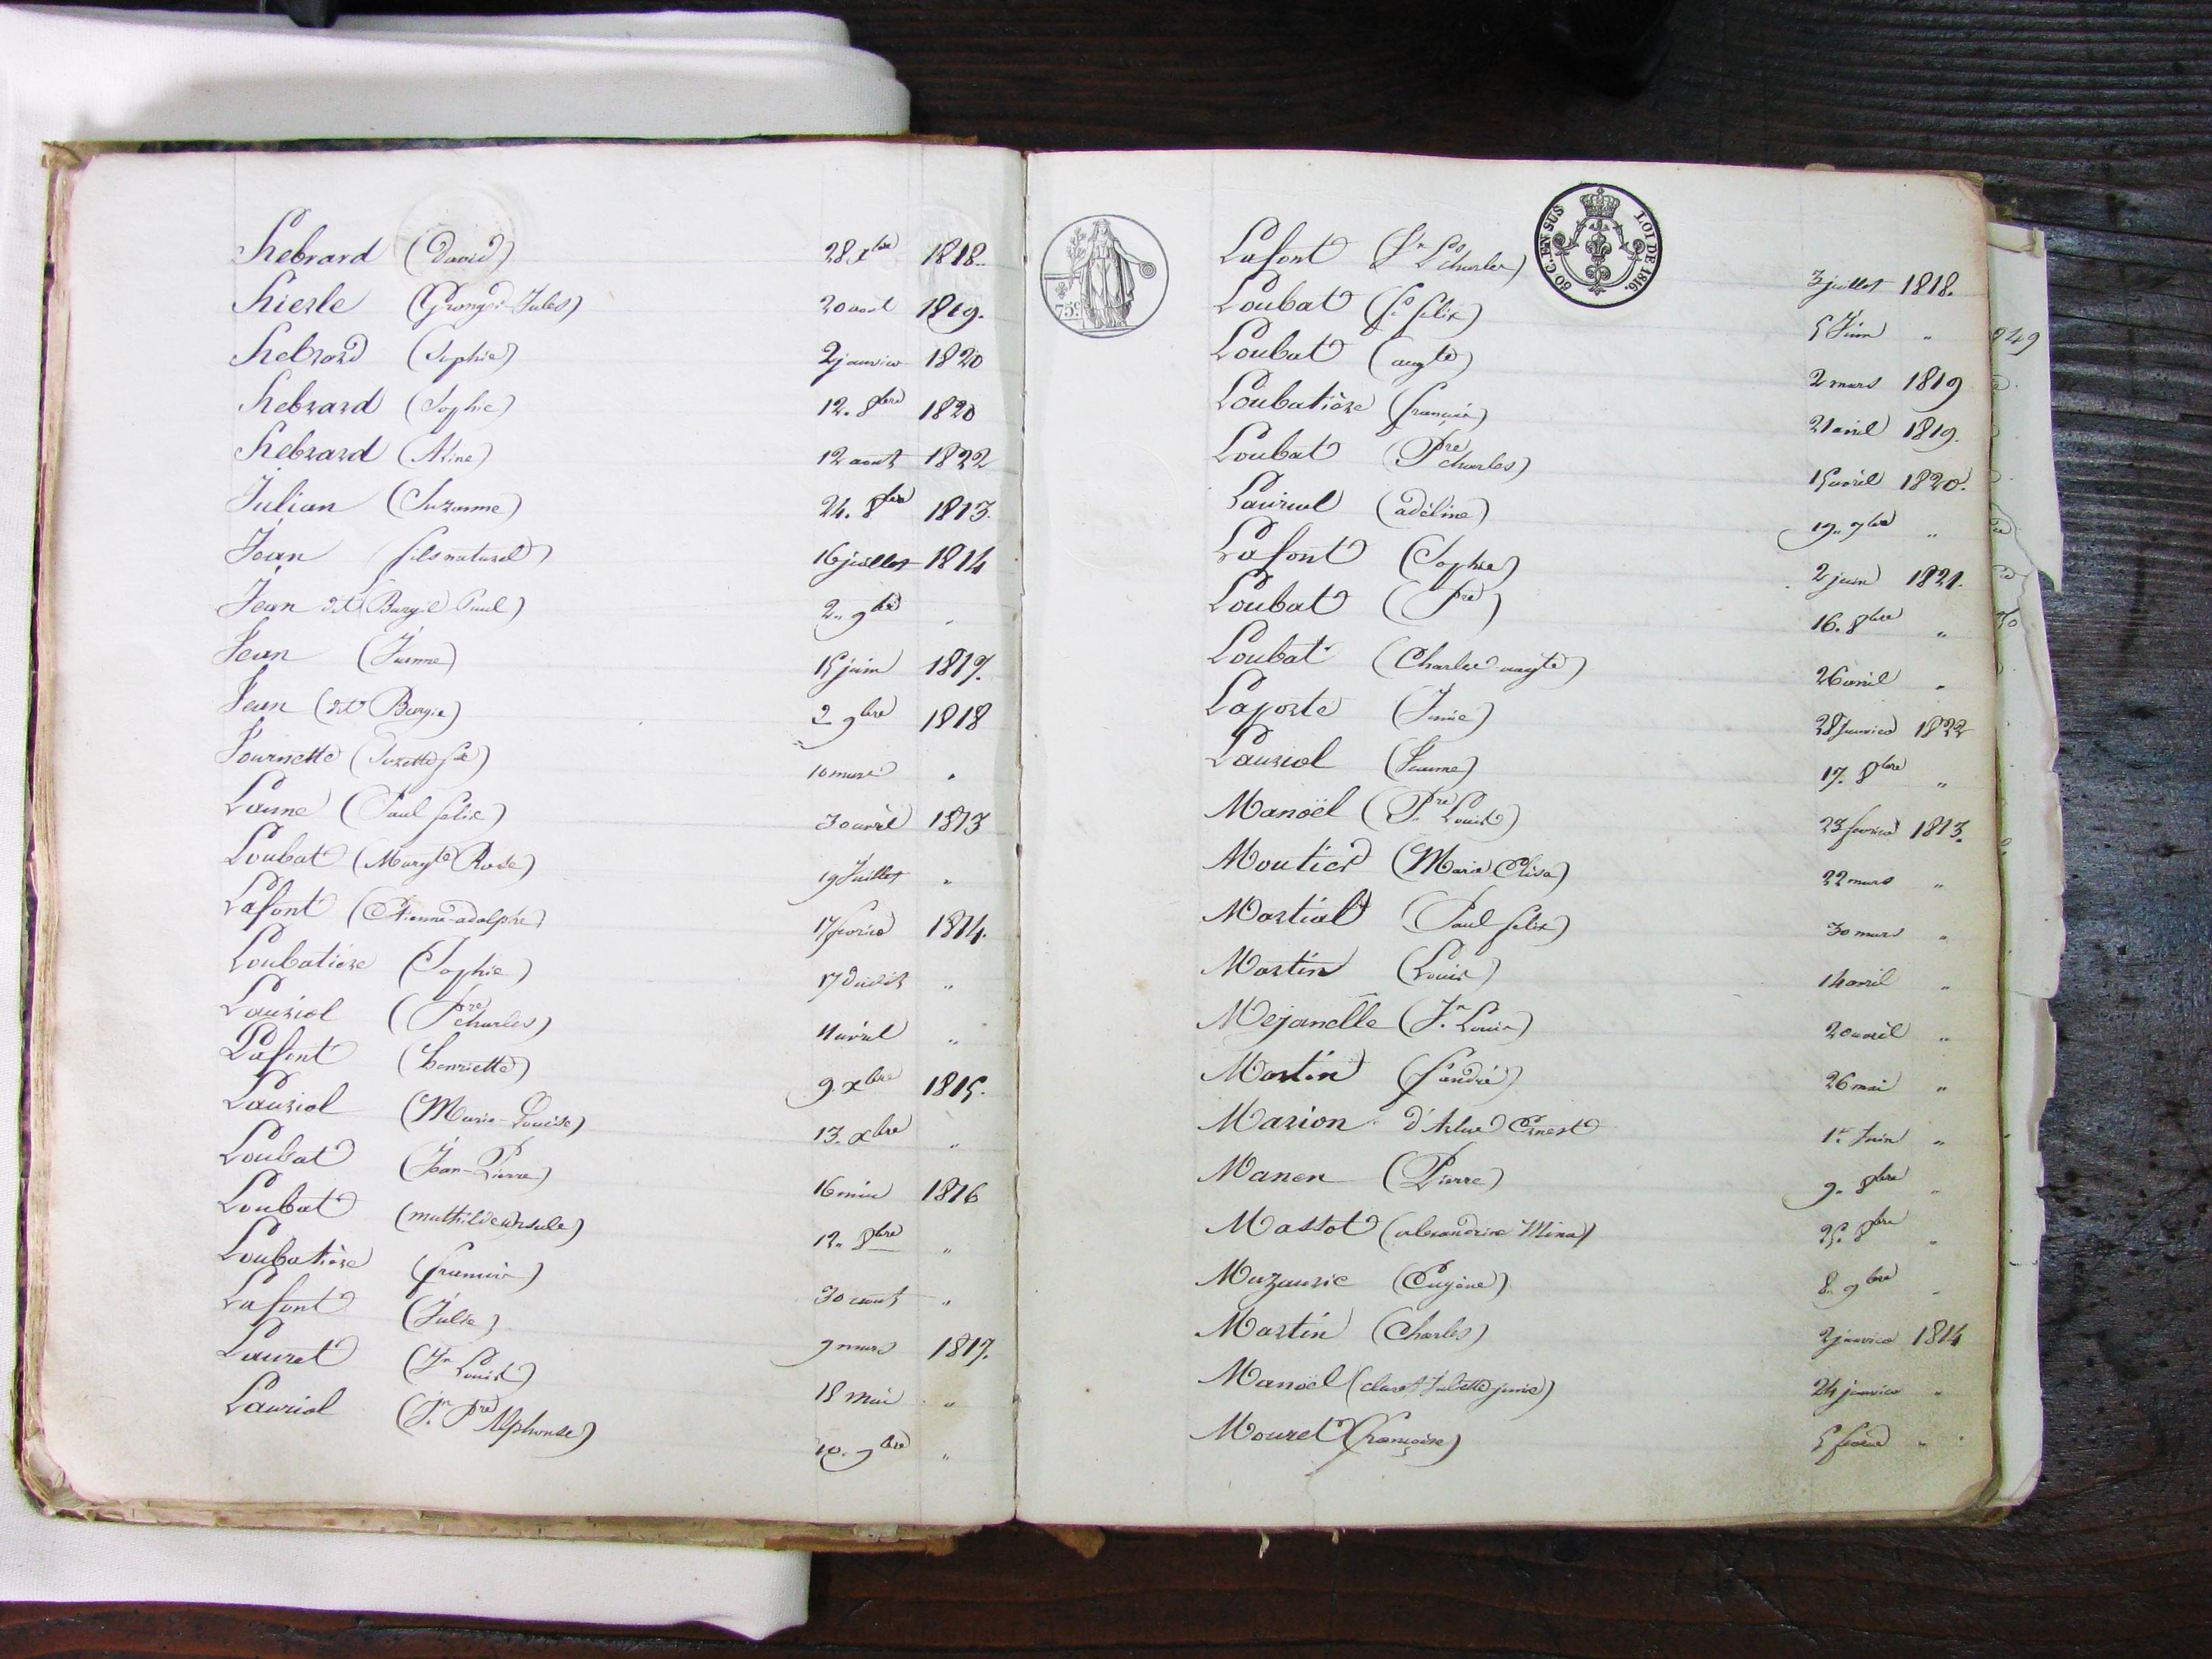 hebrard (David) 28 xbre 1818.
hierle (Granger Jules) 20 aout 1819.
hebrard (Sophie) 2 janvier 1820
hebrard (Sophie) 12. 8bre 1820
hebrard (Aline) 12 aout 1822
Julian (Suzanne) 24. 8bre 1813.
Jean (fils naturel) 16 juillet 1814
Jean dit Paul) 2. 9bre "
Jean 15 juin 1817.
Jean (dit 2 9bre 1818
Journette (Suzette 10 mars "
Laune (Paul felix) 30 avril 1813
Loubat (Margte Rose) 19 Juillet "
Lafont (Etienne-adolphe) 17 fevrier 1814.
Loubatière (Sophie) 17 Juillet "
Lauriol (Pre charles) 11 avril "
Lafont (henriette) 9. xbre 1815.
Lauriol (Marie-Louise) 13. xbre "
Loubat (Jean-Pierre) 16 mai 1816
Loubat (mathilde ursule) 12. 8bre "
Loubatière 30 aout "
Lafont (Julie) 9 mars 1817.
Lauret (Jn Louis) 18 Mai "
Lauriol (Jn Pre Alphonse) 10. 9bre "
75c
50 C. EN SUS LOI DE 1816.
Lafont Ls charles) 3 juillet 1818.
Loubat felix) 5 Juin "
Loubat (augte) 2 mars 1819
Loubatière 21 avril 1819.
Loubat (Pre charles) 15 avril 1820.
Lauriol (adéline) 19. 9bre "
Lafont (Sophie) 2 juin 1821.
Loubat 16. 8bre "
Loubat (Charles augte) 26 avril "
Laporte 28 Janvier 1822
Lauriol (Jeanne) 17. 8bre "
Manoël (Pre Louis) 23 fevrier 1813.
Moutier (Marie Elisa) 22 mars "
Martial (Paul felix) 30 mars "
Martin (Louis) 14 avril "
Mejanelle (Jn. Louis) 20 avril "
Martin andré) 26 mai "
Marion Ernest 1er Juin "
Manen (Pierre) 9. 8bre "
Massot (alexandrine Mina) 25. 8bre "
Mazauric (Eugène) 8. 9bre "
Martin (Charles) 2 janvier 1814
Manoël Juliette 24 janvier "
Mouret (françoise) 5 fevrier "
249